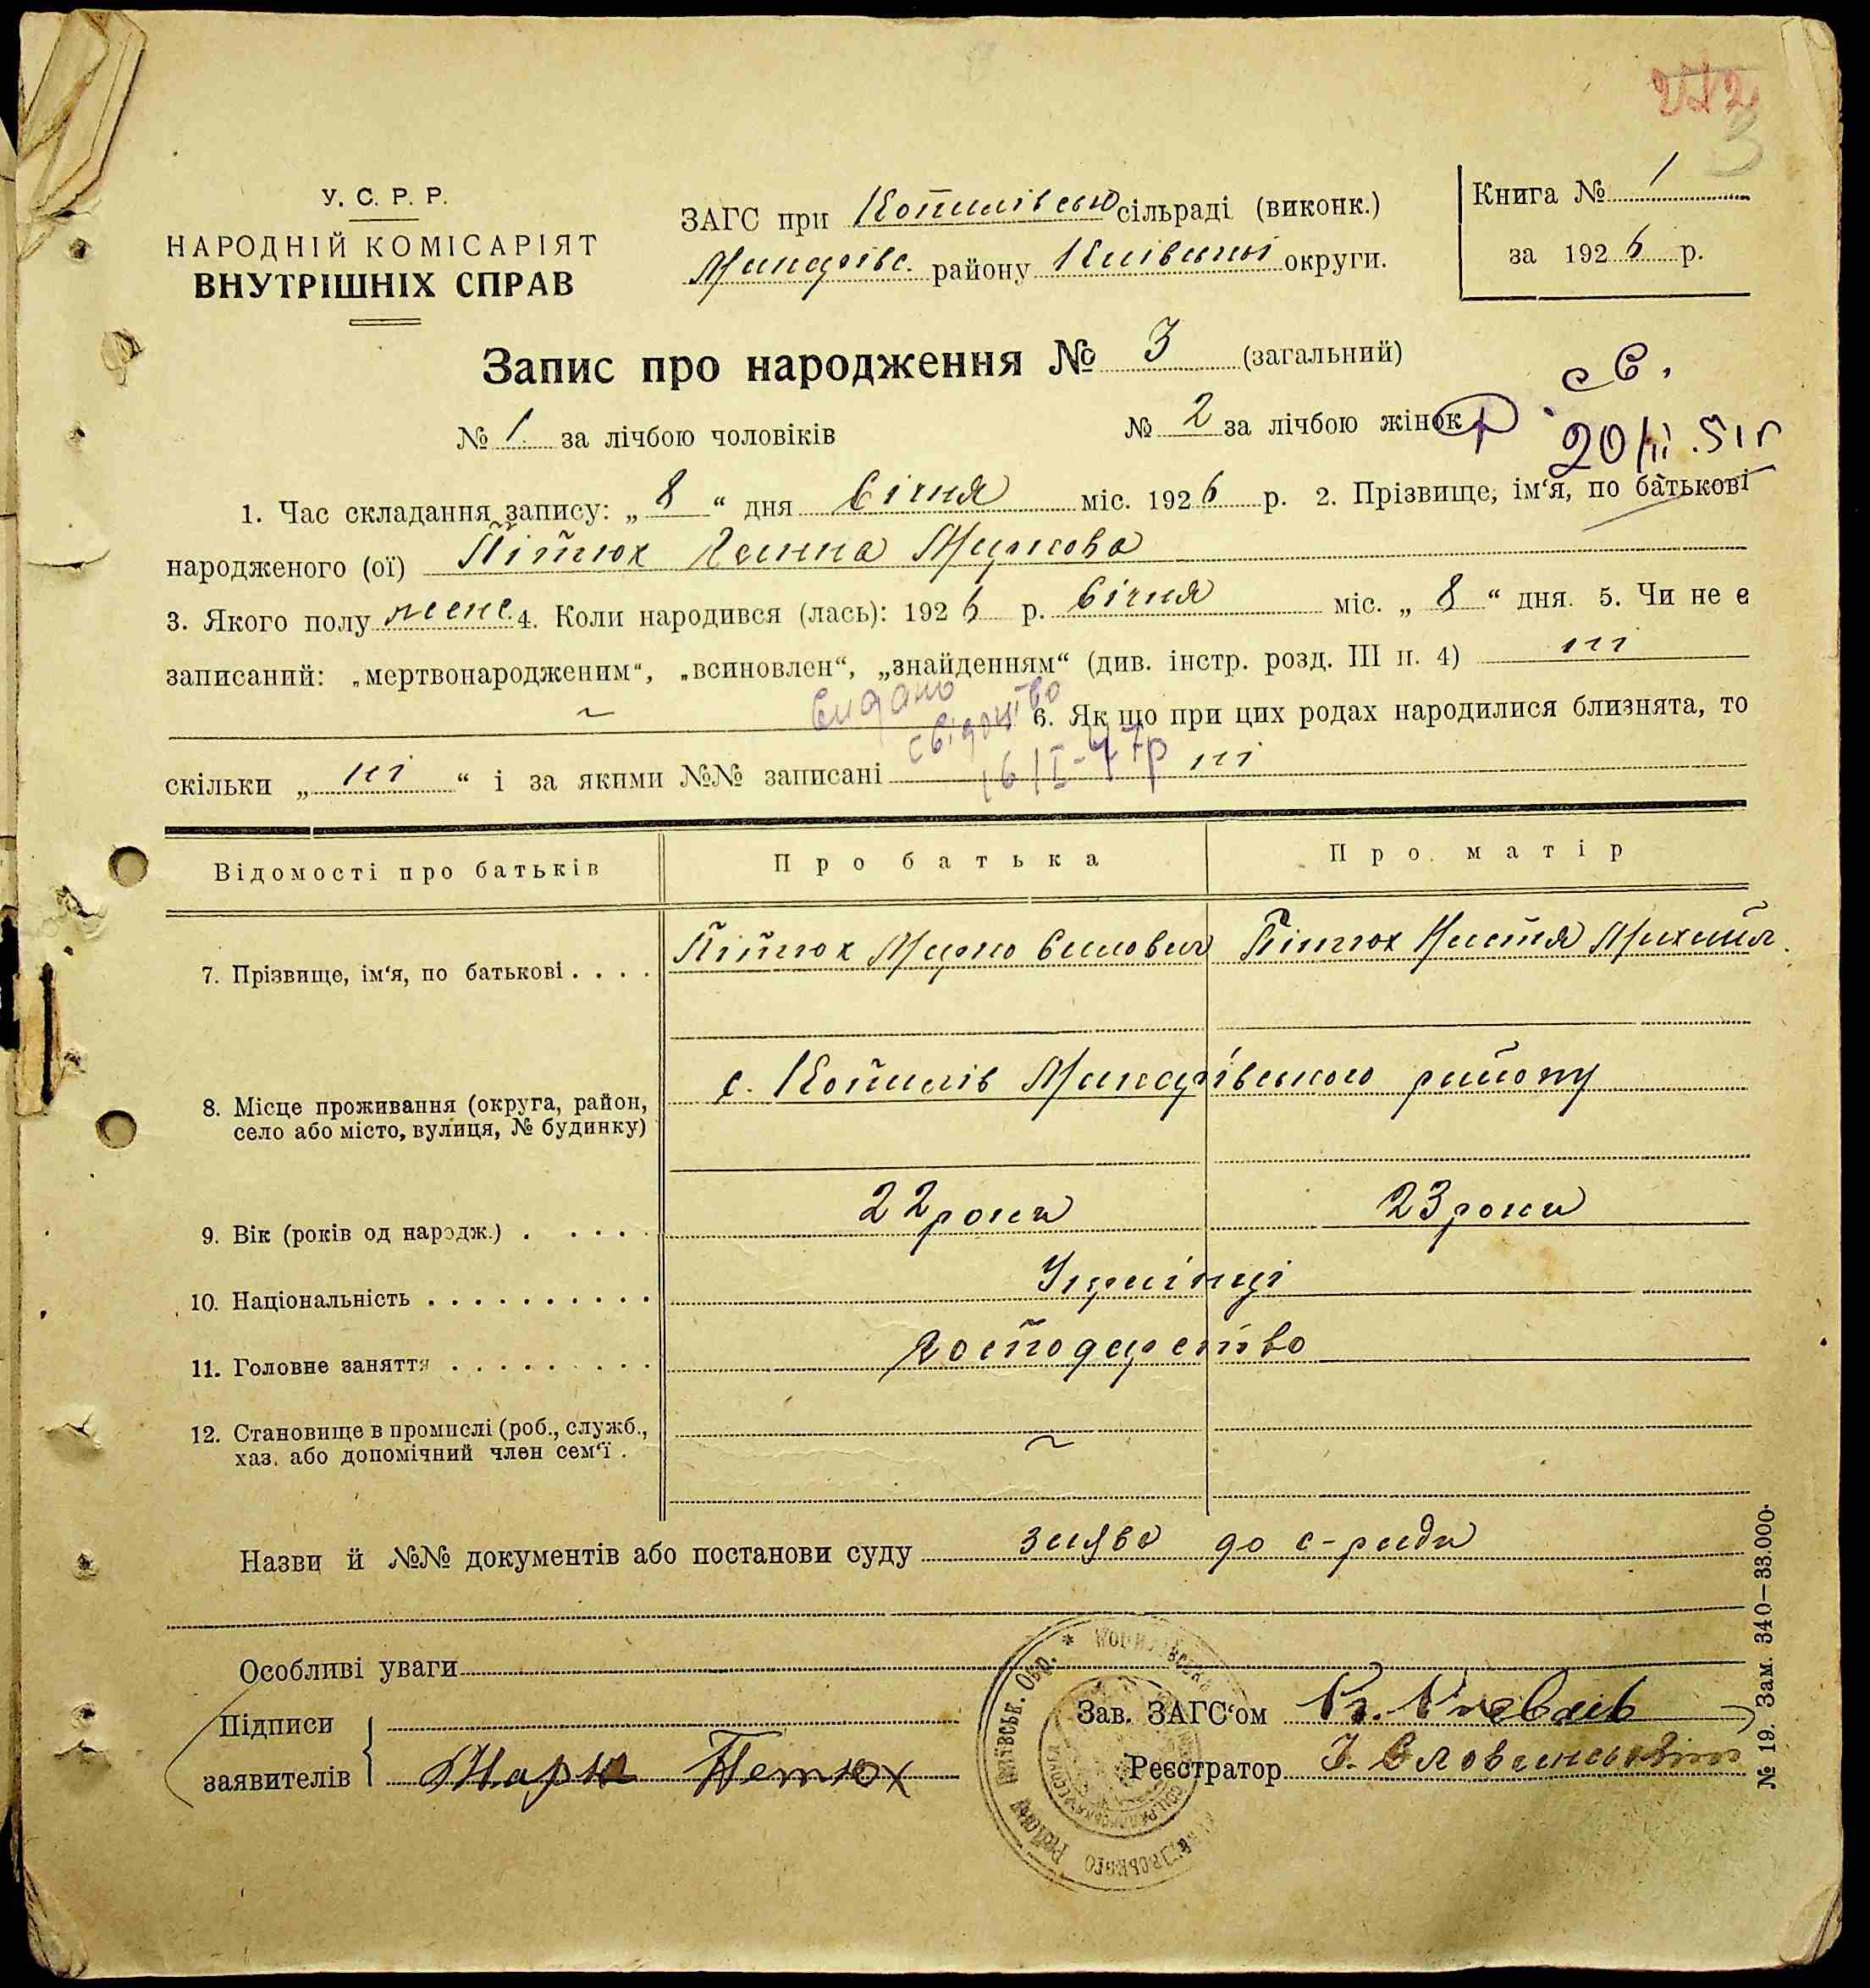 272
3
У. С. Р. Р.
НАРОДНІЙ КОМІСАРІЯТ
ВНУТРІШНІХ СПРАВ
ЗАГС при Копилівськ сільраді (виконк.)
Макарівс. району Київської округи.
Книга № 1
за 1926 р.
Запис про народження № 3 (загальний)
№ 1 за лічбою чоловіків № 2 за лічбою жінок
20/II.51г
1. Час складання запису: „8“ дня Січня міс. 1926 р. 2. Прізвище, ім‘я, по батькові
народженого (ої) Пітюх Ганна Маркова
3. Якого полу жене. 4. Коли народився (лась): 1926 р. Січня міс. „8“ дня. 5. Чи не є
записаний: „мертвонародженим“, „всиновлен“, „знайденням“ (див. інстр. розд. III п. 4) ні
~ 6. Як що при цих родах народилися близнята, то
Видано
свідоцтво
16/I-47р
скільки „ні“ і за якими №№ записані ні
Відомості про батьків Про батька Про матір
7. Прізвище, ім‘я, по батькові . . . . Пітюх Марко Силович Пітюх Настя Михайл.
8. Місце проживання (округа, район,
село або місто, вулиця, № будинку)
с. Копилів Макарівського району
9. Вік (років од народж.) . . . . . 22 роки 23 роки
10. Національність . . . . . . . . . . Українці
11. Головне заняття . . . . . . . . . Господарство
12. Становище в промислі (роб., служб.,
хаз. або допомічний член сем‘ї .
~
Назви й №№ документів або постанови суду заява до с-ради
Особливі уваги
Підписи
заявителів
Марко Петюх
Зав. ЗАГС‘ом
Реєстратор
№ 19. Зам. 340—33.000.